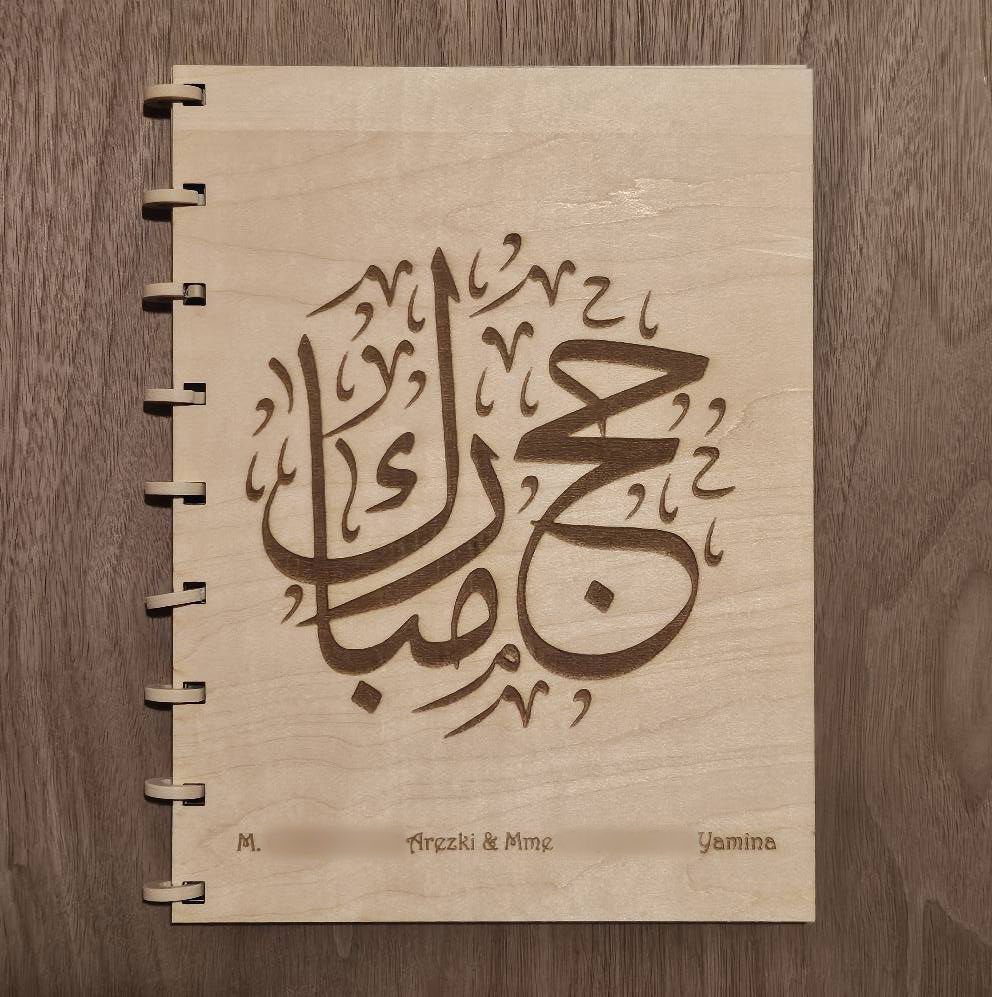 حج مبارك
M. Arezki & Mme Yamina